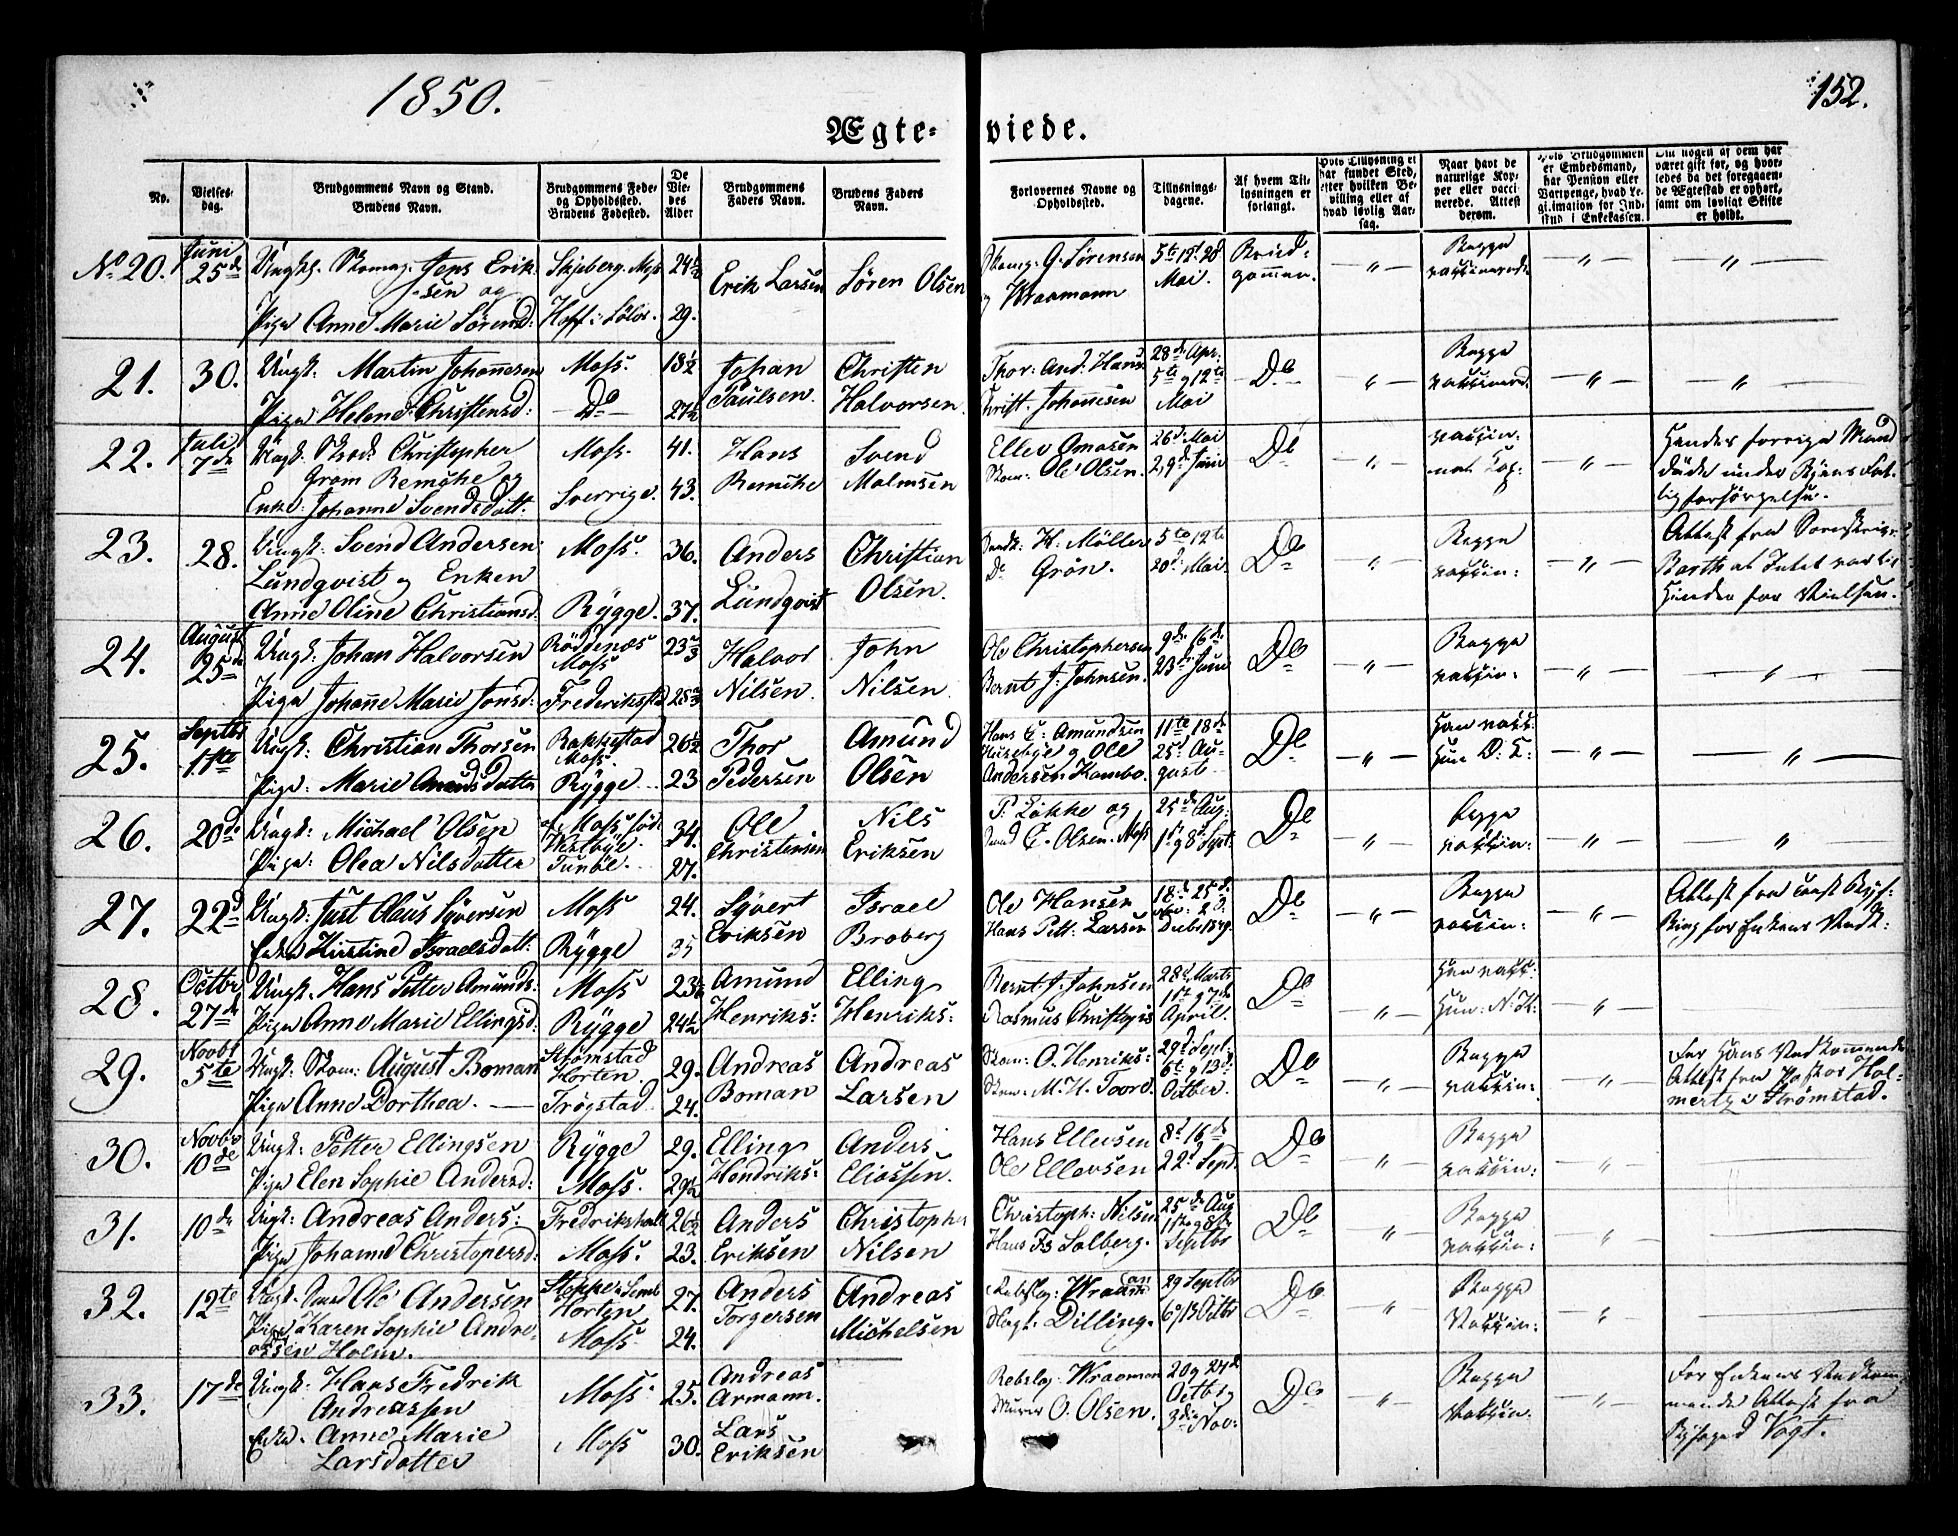 1850.
152.
Ægte- viede.
No.
Vielses-
dag.
Brudgommens Navn og Stand.
Brudens Navn.
Brudgommens Føde-
og Opholdssted.
Brudens Fødested.
De
Vie-
des
Alder
Brudgommens
Faders Navn.
Brudens Faders
Navn.
Forlovernes Navne og
Opholdssted.
Tillysnings-
dagene.
Af hvem Til-
lysningen er
forlangt.
Hvis Tillysning ei
har fundet Sted,
efter hvilken Be-
villing eller af
hvad lovlig Aar-
sag.
Naar havt de
naturlige Kop-
per eller vacci-
nerede. Attest
derom.
Hvis Brudgommen
er Embedsmand,
har Pension eller
Vartpenge, hvad Le-
gitimation for Ind-
skud i Enkekassen.
Om nogen af dem har
været gift før, og hvor-
ledes da det foregaaen-
de Ægteskab er ophørt,
samt om lovligt Skifte
er holdt.
No 20.
Juni
25de
Ungk. Skomag. Jens Erik-
sen og
Pige Anne Marie Sørensd:
Skjeberg. Moss
Hoff i Sølør.
24½
29.
Erik Larsen
Søren Olsen
Skomg. G. Sørensen
og Wraamann
5te 12t 20
Mai.
Brud-
gommen.
Begge
vaccinerede
21.
30.
Ungk: Martin Johannesen
Pige Helene Christensd:
Moss.
Do
18½
27½
Johan
Paulsen.
Christen
Halvorsen.
Thor: And: Hans
Christ. Johannesen
28de Apr:
5te og 12te
Mai
Do
Begge
vaccinered.
22.
Juli
7de
Ungk. Christopher
Grøm Remche og
Enke: Johanne Svendsdatt:
Moss.
Sverrige.
41.
43.
Hans
Remche
Svend
Malmsen
Ellev Omosen
Skom: Ole Olsen.
26de Mai
2, 9de Juni
Do
vaccin:
nat. Kop:
Hendes forrige Mand
døde under Byens Fat-
tigforsørgelse.
23.
28.
Ungk: Svend Andersen
Lundqvist og Enken
Anne Oline Christiansd.
Moss.
Rygge.
36.
37.
Anders
Lundqvist
Christian
Olsen.
H. Møller
Do Grøn.
5te 12te
20de Mai.
Do
Begge
vaccin:
Attest fra Sorenskriver
Barth at Intet var til
Hinder for Vielsen.
24.
August
25de
Ungk: Johan Halvorsen
Pige Johanne Marie Jonsd:
Rødenæs
Moss
Frederiksstd
23⅔
28⅔
Halvor
Nilsen.
John
Nilsen.
Ole Christophersen
Bernt J. Johnsen.
9de 16de
23de Juni
Do
Begge
vaccin:
25.
Septbr
11te
Ungk: Christian Thorsen
Pige: Marie Amundsdatter
Rakkestad
Moss.
Rygge
26½
23
Thor
Pedersen
Amund
Olsen
Hans C: Amundsen
Husebye og Ole
Andersen Kambo.
11te 18de
25de Au-
gust
Do
Han vacc:
Hun D. K:
26.
20de
Ungk: Michael Olsen
Pige: Olea Nilsdatter
af Moss, fød:
Vestbye.
Tunøe.
34.
27.
Ole
Christensen
Nils
Eriksen
P. Løkke og
C. Olsen. Moss
25de Aug:
1st og 8de Sept:
Do
Begge
vaccin:
27.
22de
Ungk: Just Olaus Syversen
Enke Kirstine Israelsdatt:
Moss
Rygge
24.
35
Syvert
Eriksen
Israel
Broberg
Ole Hansen
Hans Pett: Larsen
18de 25de
2de
Decbr 1849.
Do
Begge
vaccin:
Attest fra
for Enkens Vedk:
28.
Octbr
27de
Ungk. Hans Petter Amunds:
Pige Anne Marie Ellingsd:
Moss
Rygge
23½
24½
Amund
Henriks:
Elling
Henriks:
Bernt J. Johnsen
Rasmus Christophs
28de Marts
1ste og 7de
April.
Do
Han vacc:
Hun: N. K:
29.
Novbr
5te
Ungk: Skom: August Boman
Pige Anne Dorthea.
Strømstad
Horten.
Trøgstad.
29.
24.
Andreas
Boman
Andreas
Larsen
Skom: O. Henriks:
Skom: M. H. Foord.
29de Sept:
6te og 13de
Octber.
Do
Begge
vaccin:
For Hans Vedkommende
Attest fra Pastor Hol-
mertz i Strømstad.
30.
Novbr
10de
Ungk: Petter Ellingsen
Pige Elen Sophie Andersd:
Rygge
Moss.
29.
29½
Elling
Hendriks:
Anders
Eliassen.
Hans Ellevsen
Ole Ellevsen
8de 16de
22de Sept:
Do
Begge
vaccin:
31.
10de
Ungk: Andreas Anders:
Pige Johanne Christopersd:
Fredrikshald
Moss.
26½
23.
Anders
Eriksen
Christopher
Nilsen
Christoph: Nilsen
Hans Fs Solberg.
25de Aug
1ste og 8de
Septbr
Do
Begge
vaccin:
32.
12te
Ungk. Ole Andersen
Pige Karen Sophie Andre-
assen Holm.
Horten
Moss.
27.
24.
Anders
Torgersen
Andreas
Michelsen
Rebslag: Wraamann
Dilling.
29 Septbr
6 og 13 Octbr
Do
Begge
Vaccin:
33.
17de
Ungk: Hans Fredrik
Andreassen
Enke. Anne Marie
Larsdatter
Moss.
Moss
25.
30.
Andreas
Armann.
Lars
Eriksen
Rebslag: Wraaman
Murer O. Olsen.
20 og 27de
Octb og
3die Nov:
Do
Begge
Vaccin.
For Enkens Vedkom-
mende Attest fra
Byfoged Vogt.